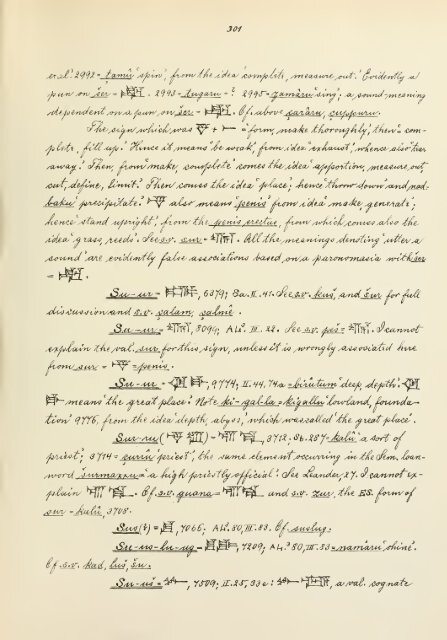 301
er.al.' 2992 = tamû 'spin', from the idea 'complete, measure out.' Evidently a
pun on šer = . 2993 = tugaru = ?. 2995 = zamâru 'sing'; a sound-meaning
dependent on a pun on šer = . Cf. above ṣarâru, cuppuru.
The sign which was + = 'form, make thoroughly', then = 'com-
plete, fill up.' Hence it means 'be weak', from idea 'exhaust', whence also 'tear
away.' Then, from 'make, complete' comes the idea 'apportion, measure out,
cut, define, limit.' Then comes the idea 'place'; hence 'throw down' and nad-
baku 'precipitate.' also means 'penis' from idea 'make, generate';
hence 'stand upright', from the penis erectus, from which comes also the
idea 'grass, reeds.' See s.v. sur = . All the meanings denoting 'utter a
sound' are evidently false associations based on a paronomasia with šer
= .
Su-ur = , 6379; Sa. II. 41. See s.v. kuš, and šur for full
discussion and s.v. ṣalam, ṣalmê.
Su-ur = , 5090; AL.² III. 22. See s.v. peš = . I cannot
explain the val. sur for this sign, unless it is wrongly associated here
from sur = = penis.
Su-ur = , 9774; II. 44. 74a = bêrûtum 'deep, depth.'
means 'the great place.' Note ki-gal-la = kigallu 'lowland, founda-
tion' 9776, from the idea 'depth, abyss', which was called 'the great place'.
Sur-ru ( ) = , 3712. Sb. 237 = kalû 'a sort of
priest'; 3714 = šurrû 'priest', the same element occurring in the Sem. loan-
word šurmaxxu = 'a high priestly official.' See Leander, 27. I cannot ex-
plain . Cf. s.v. guana = and s.v. zur, the ES. form of
sur = kalû, 3708.
Sus(?) = , 7066; AL.² 80, III. 83. Cf. suslug.
Su-us-lu-ug = , 7209; AL.² 80, III. 53 = namâru 'shine'.
Cf. s.v. kad, luš, šu.
Su-uš = , 7509; II. 25, 33e: , a val. cognate